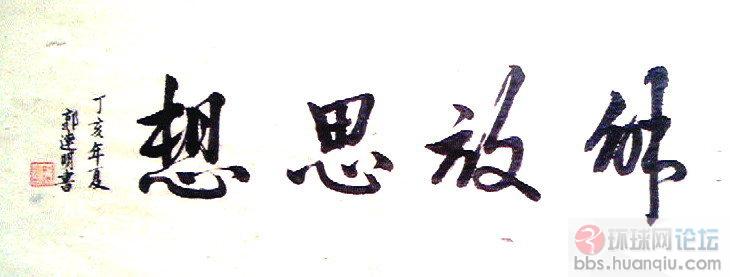 解放思想
丁亥年夏
郭明書
环球网论坛
bbs.huanqiu.com